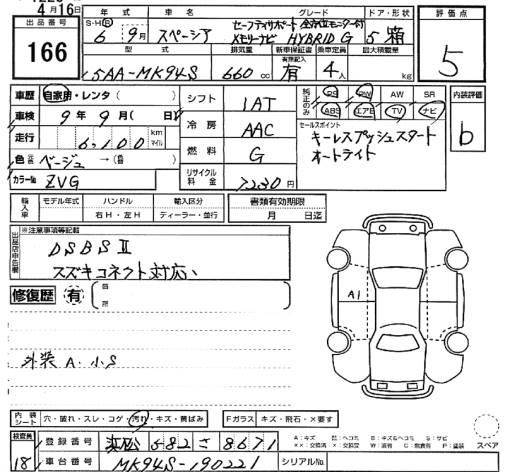 4月16日
出品番号
166
年式 車名 グレード ドア・形状
S・H・R
6 9月 スペーシア セーフティサポート 全方位モニター付 メモリーナビ HYBRID G 5 箱
評価点
5
型式 排気量 新車保証書 乗車定員 最大積載量
5AA-MK94S 660cc 有無記入 有 4人 kg
車歴 自家用・レンタ
車検 9年9月(日)
走行 6,100 km マイル
色 ベージュ→(色)
カラーNo ZVG
シフト 1AT
冷房 AAC
燃料 G
リサイクル料金 7230円
純正のみ PS PW AW SR
ABS エアB TV ナビ
内装評価
b
セールスポイント
キーレスプッシュスタート
オートライト
輸入車 モデル年式 ハンドル 右H・左H 輸入区分 ディーラー・並行
書類有効期限
月 日迄
出品店申告書
※注意事項等記載
DSBSⅡ
スズキコネクト対応
修復歴 有
A1
外装 A.小S
内装シート 穴・破れ・スレ・コゲ・汚れ・キズ・黄ばみ
Fガラス キズ・飛石・×要す
検査員
181
登録番号 浜松 582 さ 8671
車台番号 MK94S-190221
シリアルNo.
スペア